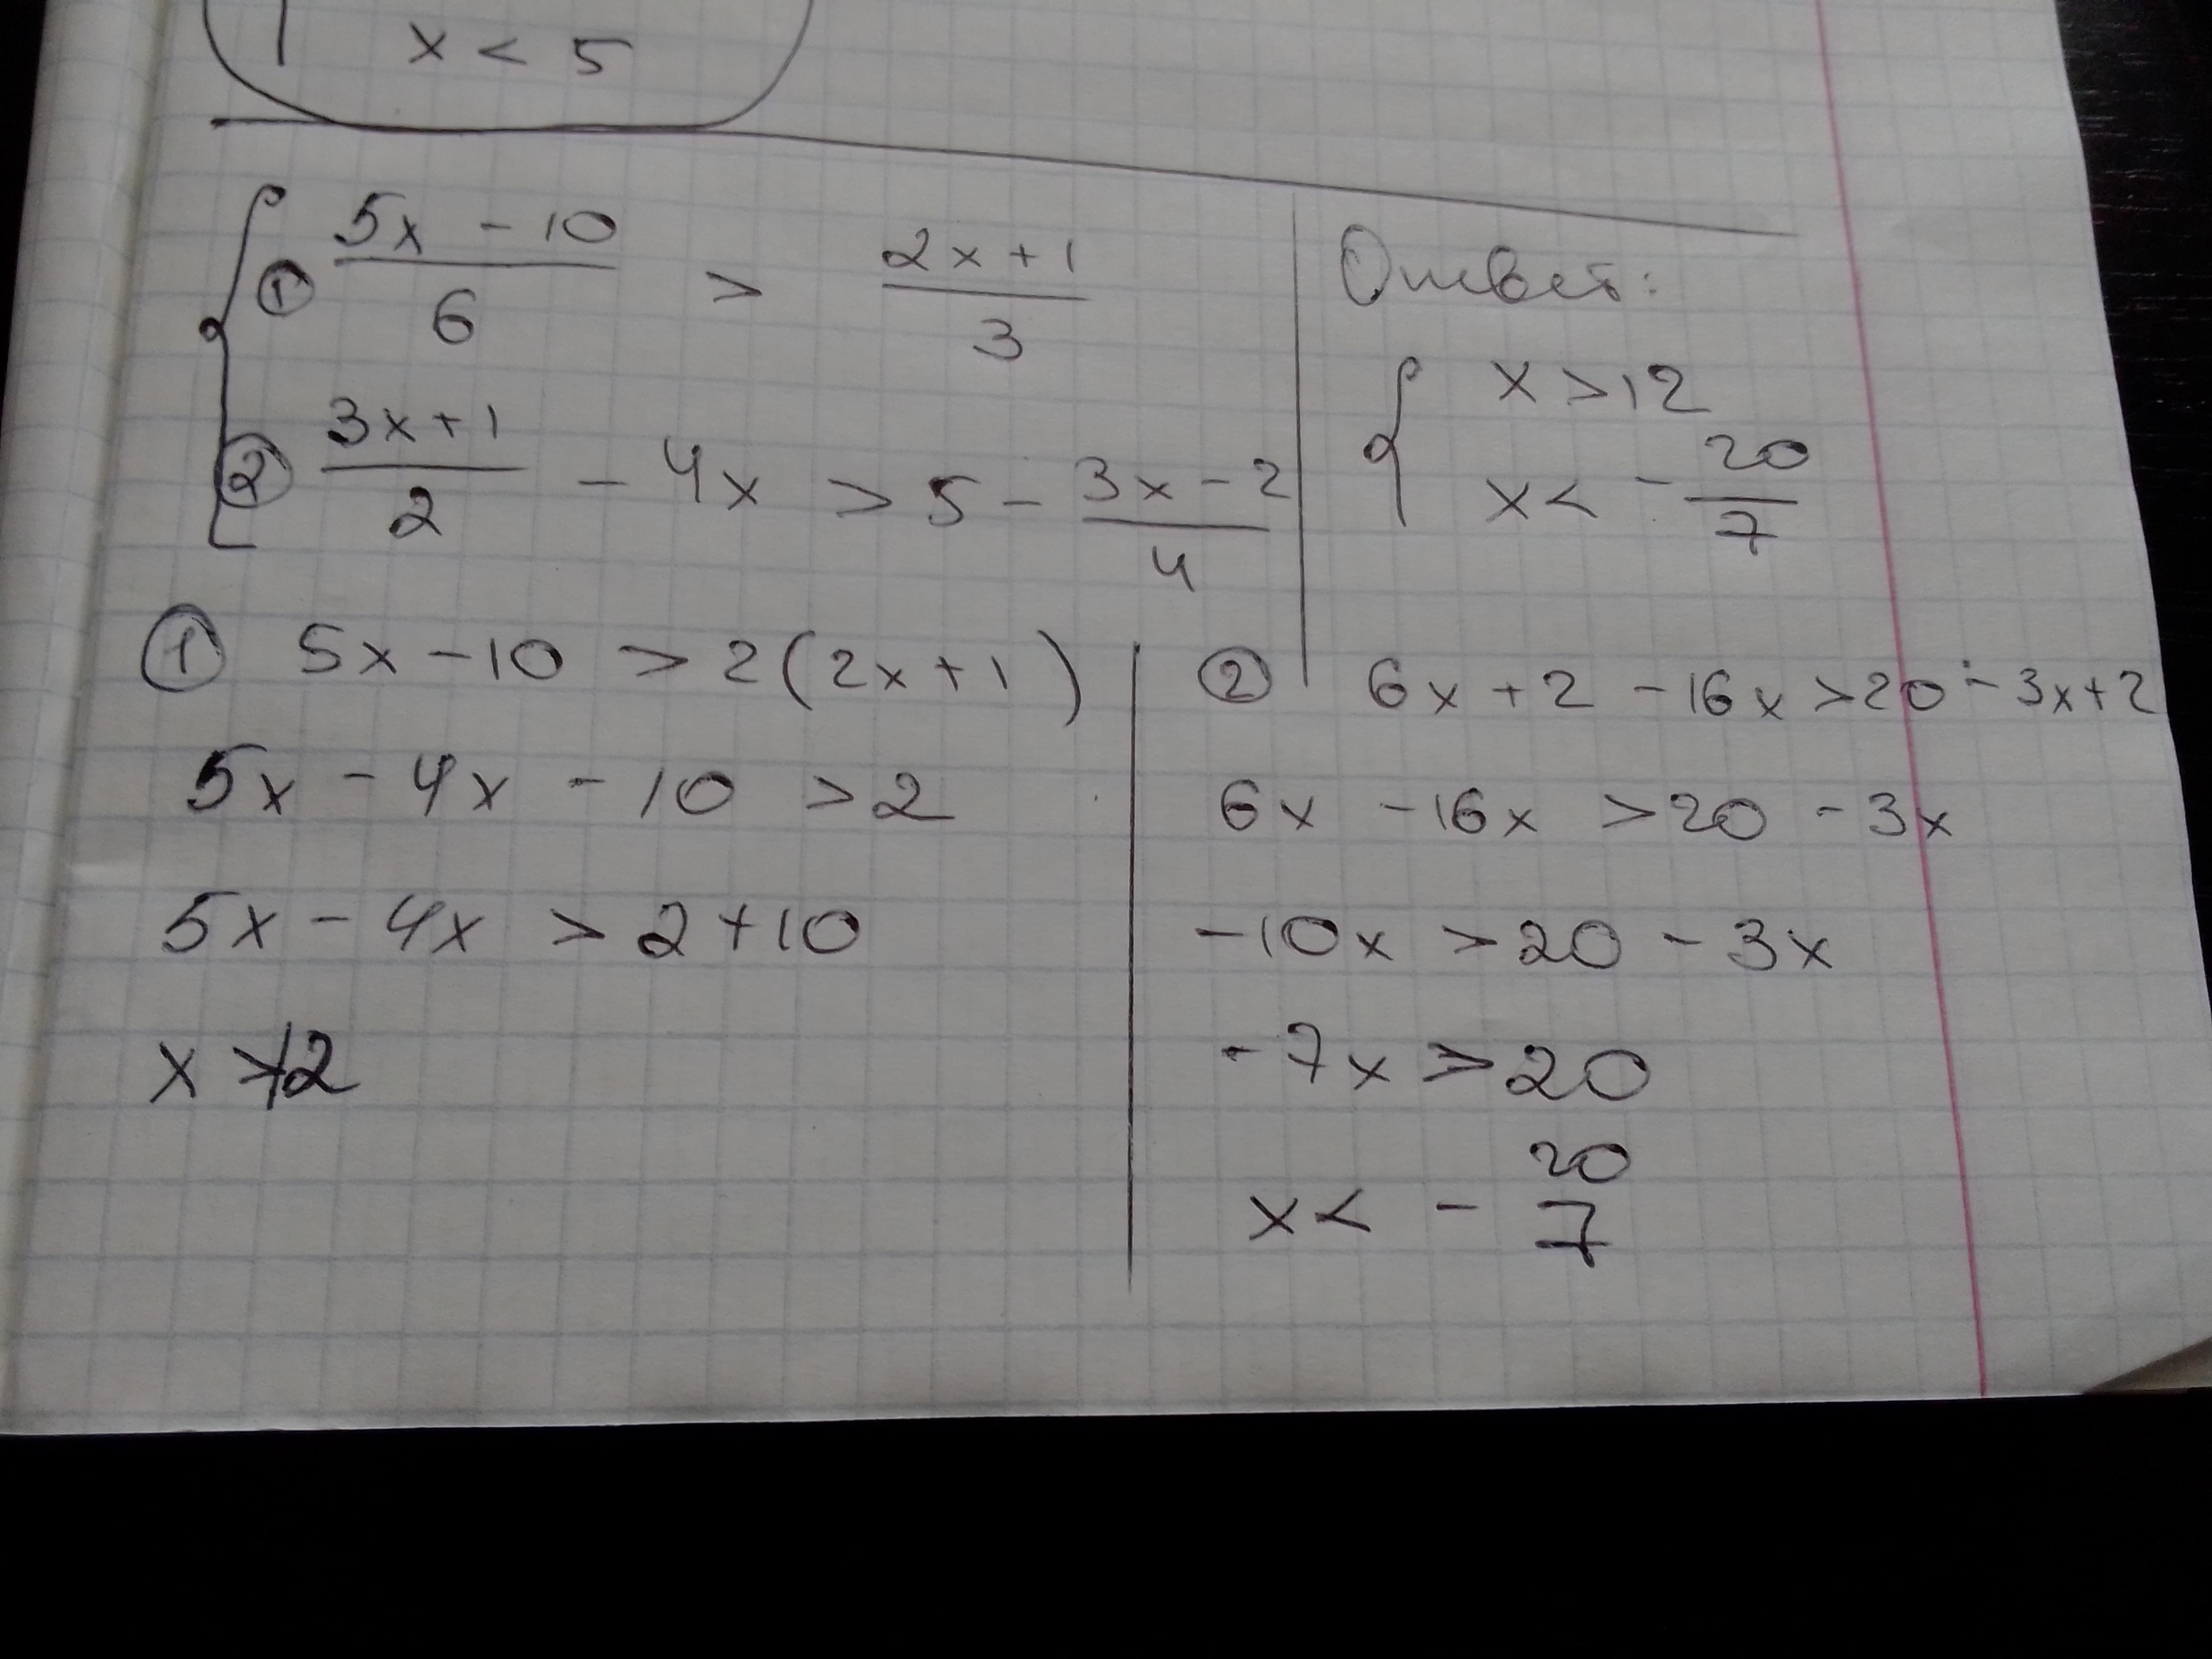 x < 5
① (5x - 10)/6 > (2x + 1)/3
② (3x + 1)/2 - 4x > 5 - (3x - 2)/4
Ответ:
x > 12
x < - 20/7
① 5x - 10 > 2(2x + 1)
5x - 4x - 10 > 2
5x - 4x > 2 + 10
x > 12
② 6x + 2 - 16x > 20 - 3x + 2
6x - 16x > 20 - 3x
-10x > 20 - 3x
-7x > 20
x < - 20/7